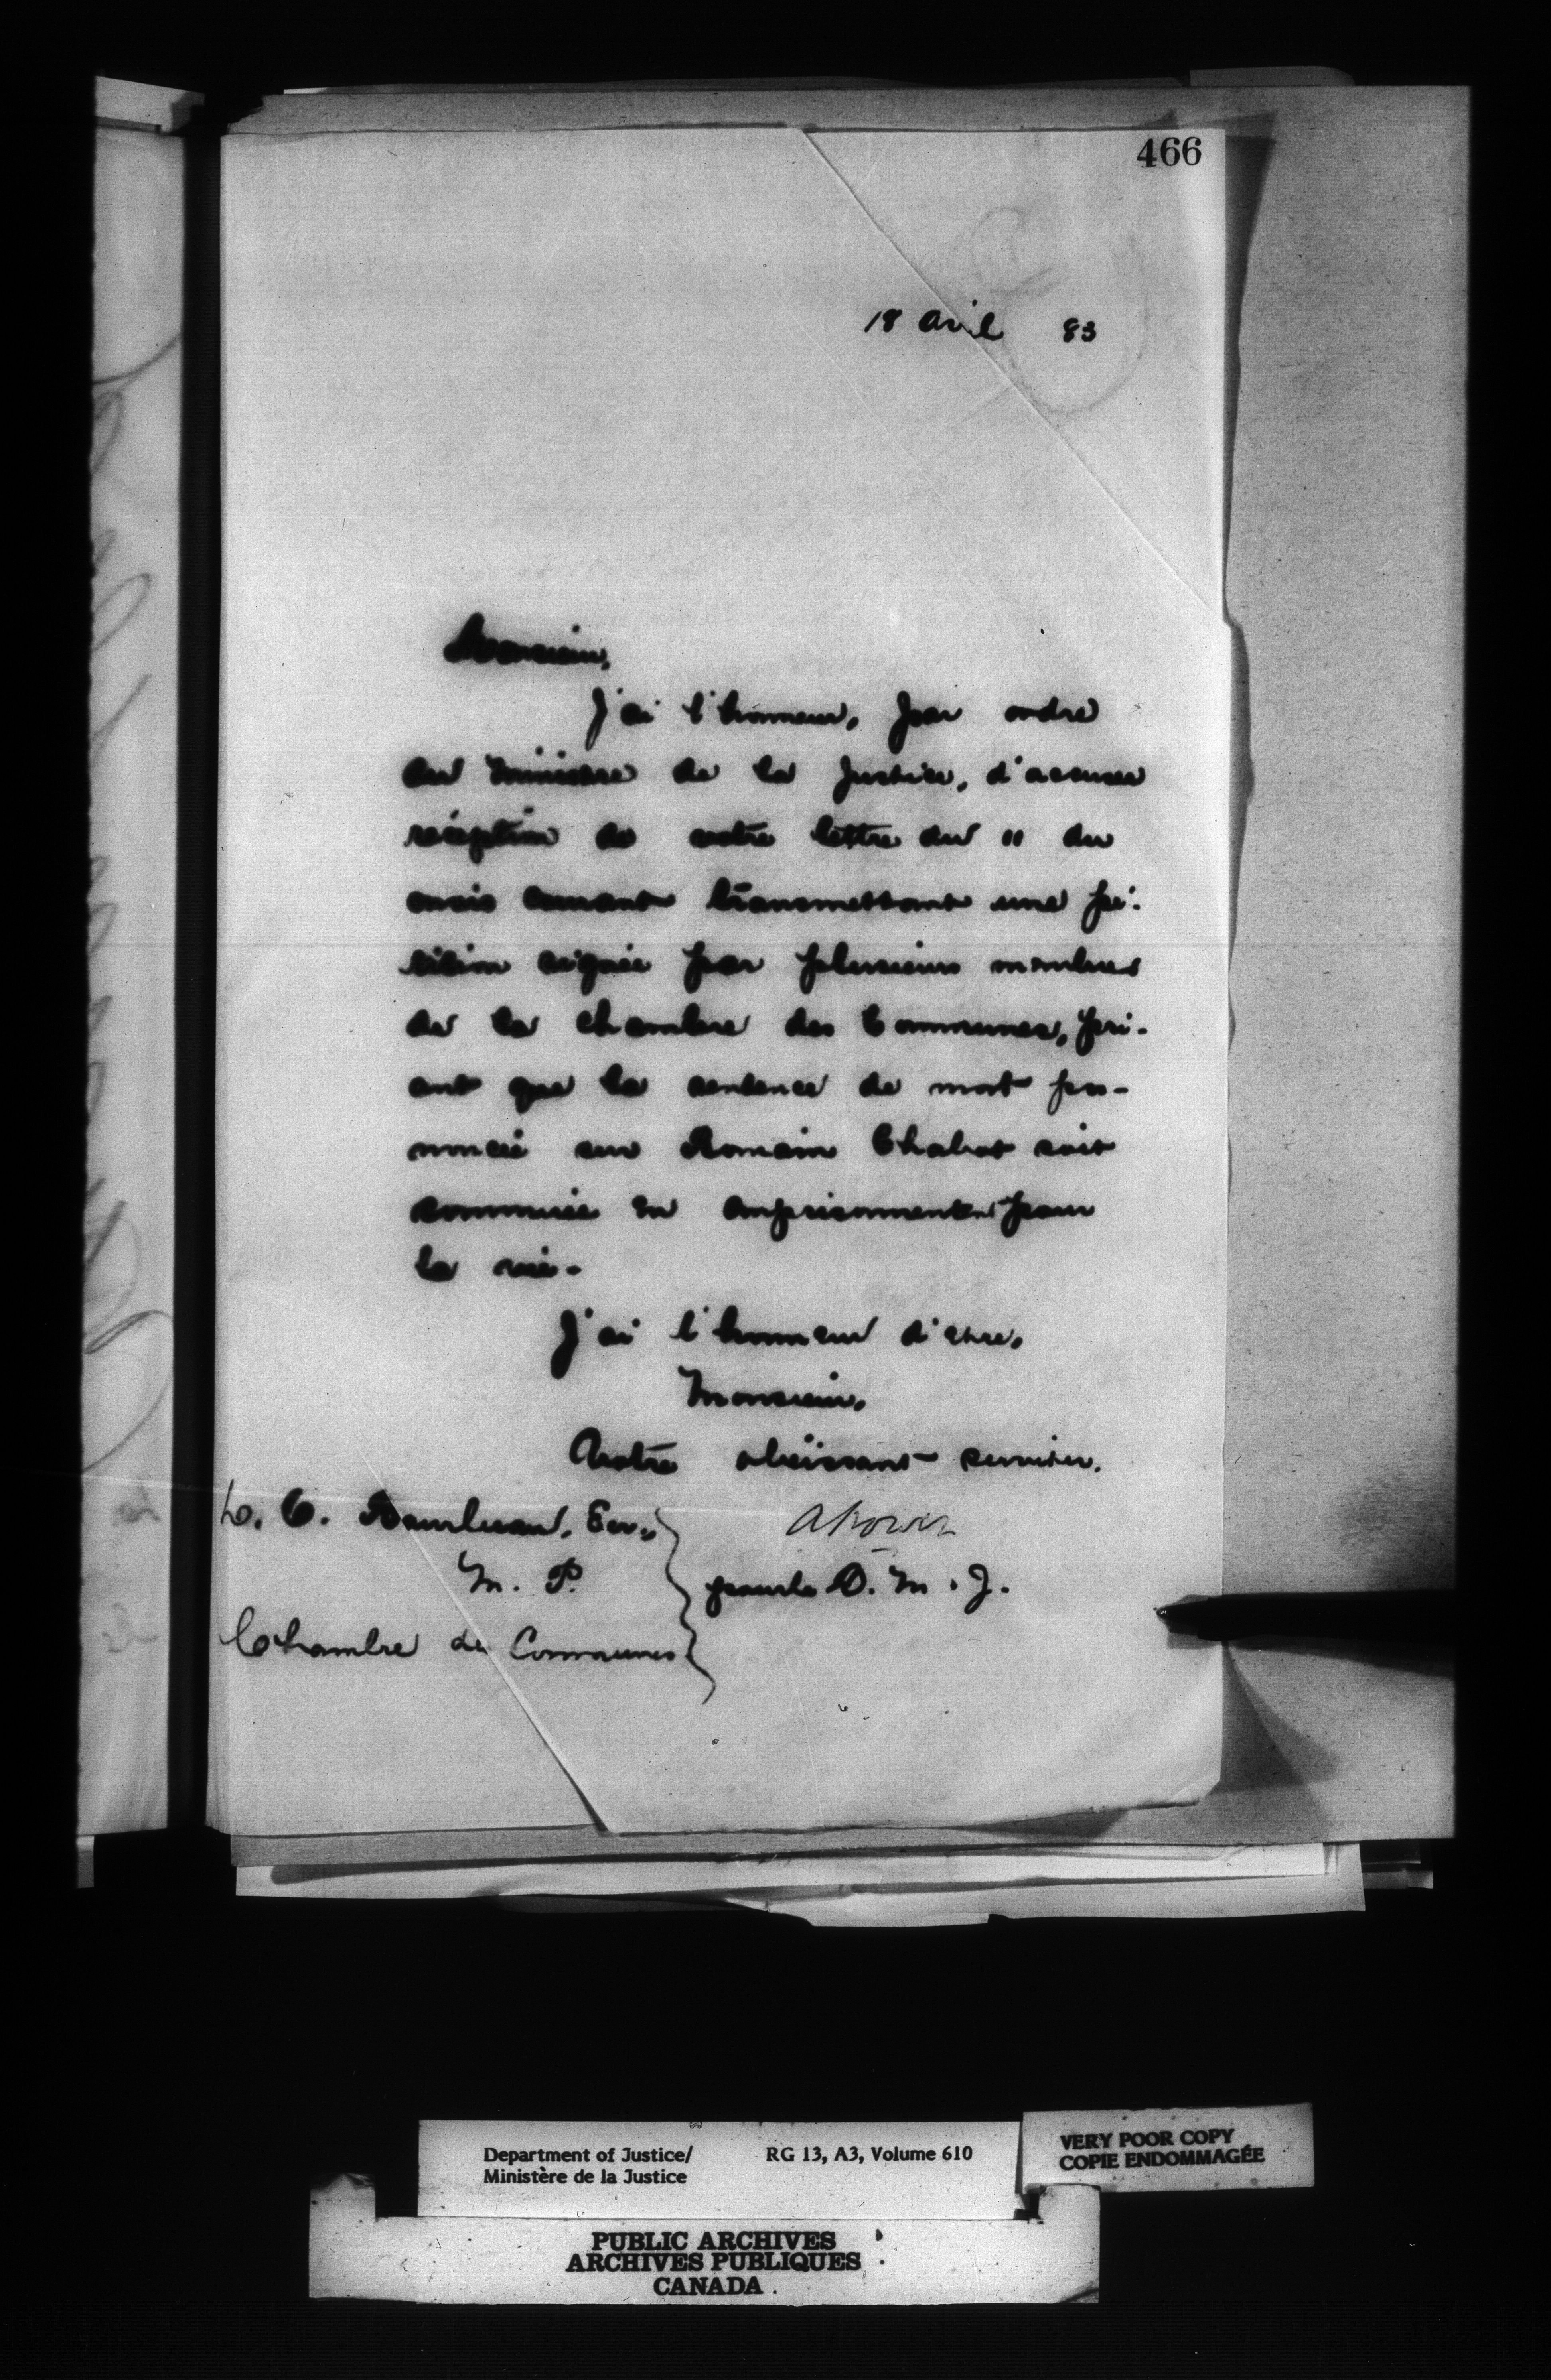 466
18 Avril 83
Monsieur,
J'ai l'honneur, par ordre
du Ministre de la Justice, d'accuser
réception de votre lettre du 11 du
mois courant transmettant une pé-
tition signée par plusieurs membres
de la Chambre des Communes, pri-
ant que la sentence de mort pro-
noncée sur Romain Chabot soit
commuée en emprisonnement pour
la vie.
J'ai l'honneur d'être,
Monsieur,
Votre obéissant serviteur.
APower
M. P.
pour le D. M. J.
Chambre des Communes
Department of Justice/
Ministère de la Justice
RG 13, A3, Volume 610
VERY POOR COPY
COPIE ENDOMMAGÉE
PUBLIC ARCHIVES
ARCHIVES PUBLIQUES
CANADA